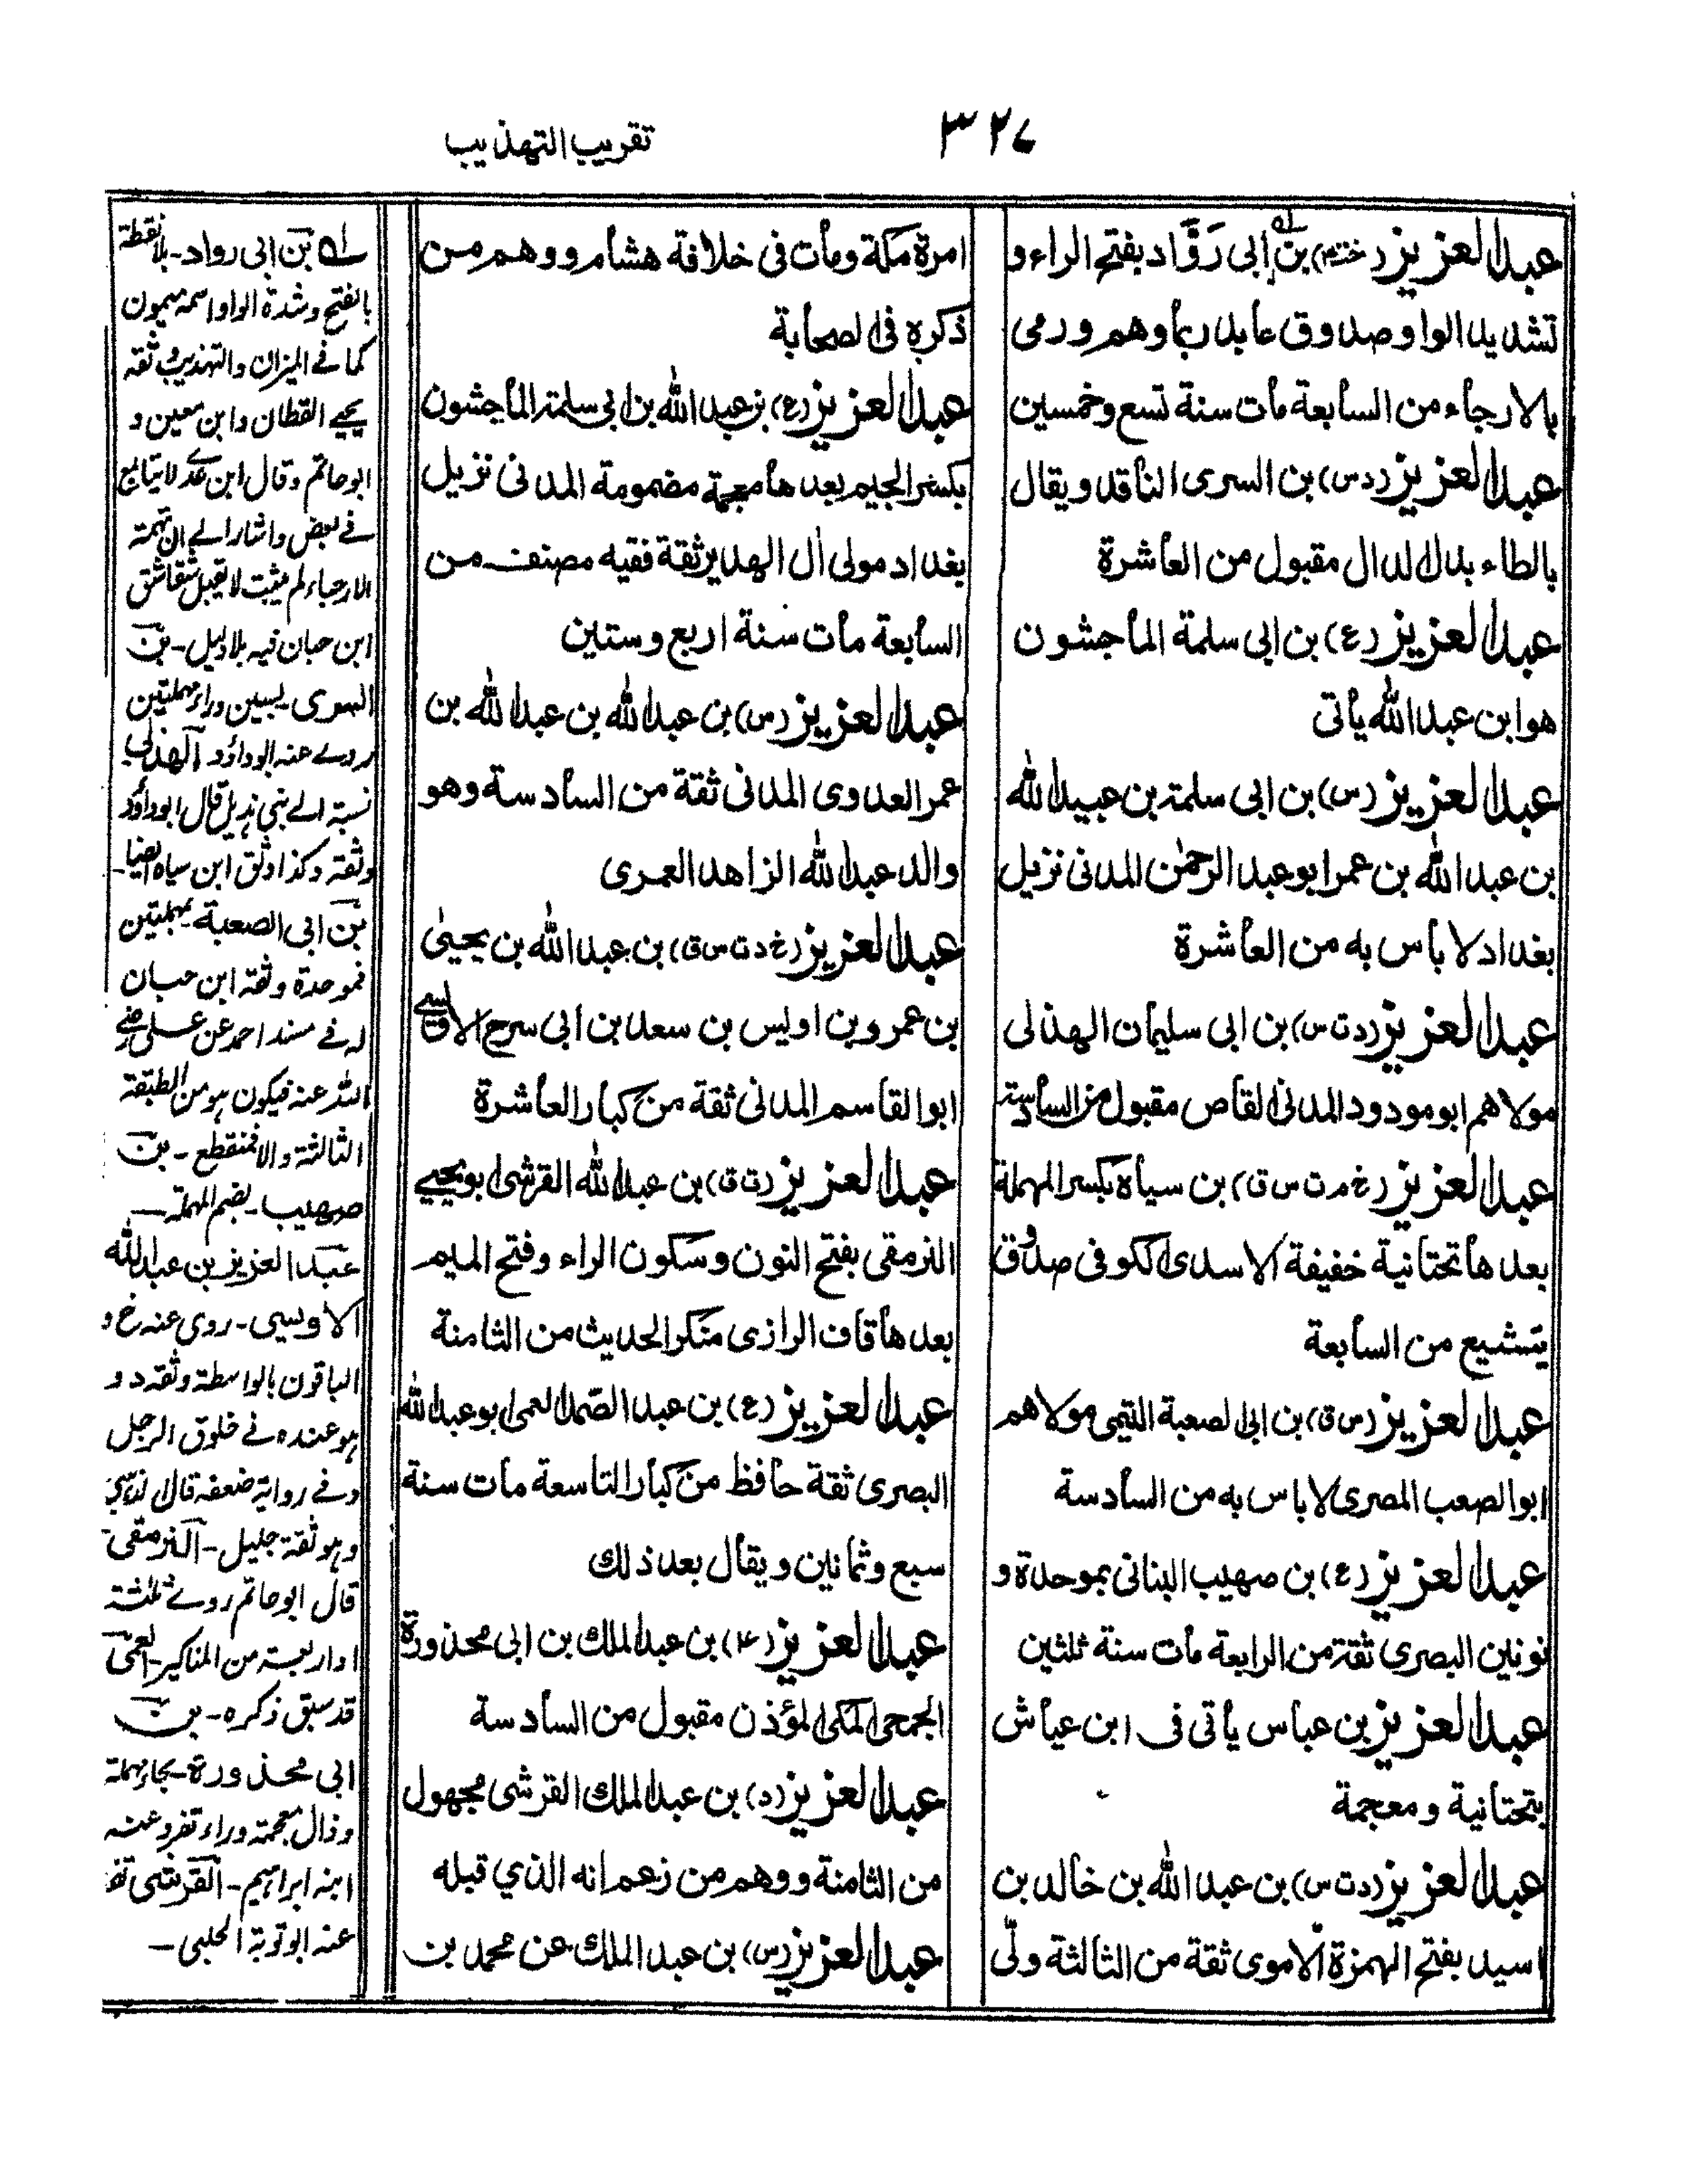 ٣٢٧
تقريب التهذيب
عبد العزيز (خت ۴) بن ابى رَوَّاد بفتح الراء و
تشديد الواو صدوق عابد ربما وهم ورمى
بالارجاء من السابعة مات سنة تسع وخمسين
عبد العزيز (د س) بن السرى الناقد ويقال
بالطاء بدل الدال مقبول من العاشرة
عبد العزيز (ع) بن ابى سلمة الماجشون
هو ابن عبد الله يأتى
عبد العزيز (س) بن ابى سلمة بن عبيد الله
بن عبد الله بن عمر ابو عبد الرحمٰن المدنى نزيل
بغداد لا بأس به من العاشرة
عبد العزيز (د ت س) بن ابى سليمان الهذلى
مولاهم ابو مودود المدنى القاص مقبول من السادسة
عبد العزيز (خ م ت س ق) بن سياه بكسر المهملة
بعدها تحتانية خفيفة الاسدى الكوفى صدوق
يتشيع من السابعة
عبد العزيز (س ق) بن ابى الصعبة التيمى مولاهم
ابو الصعب المصرى لا باس به من السادسة
عبد العزيز (ع) بن صهيب البنانى بموحدة و
نونين البصرى ثقة من الرابعة مات سنة ثلثين
عبد العزيز بن عباس يأتى فى ابن عياش
بتحتانية ومعجمة
عبد العزيز (د ت س) بن عبد الله بن خالد بن
اسيد بفتح الهمزة الاموى ثقة من الثالثة ولّى
امرة مكة ومات فى خلافة هشام ووهم من
ذكره فى الصحابة
عبد العزيز (ع) بن عبد الله بن ابى سلمة الماجشون
بكسر الجيم بعدها معجمة مضمومة المدنى نزيل
بغداد مولى اٰل الهدير ثقة فقيه مصنف من
السابعة مات سنة اربع وستين
عبد العزيز (س) بن عبد الله بن عبد الله بن
عمر العدوى المدنى ثقة من السادسة وهو
والد عبد الله الزاهد العمرى
عبد العزيز (خ د ت س ق) بن عبد الله بن يحيىٰ
بن عمرو بن اويس بن سعد بن ابى سرح الاويسى
ابو القاسم المدنى ثقة من كبار العاشرة
عبد العزيز (ت ق) بن عبد الله القرشى ابو يحيے
النرمقى بفتح النون وسكون الراء وفتح الميم
بعدها قاف الرازى منكر الحديث من الثامنة
عبد العزيز (ع) بن عبد الصمد العمى ابو عبد الله
البصرى ثقة حافظ من كبار التاسعة مات سنة
سبع وثمانين ويقال بعد ذلك
عبد العزيز (۴) بن عبد الملك بن ابى محذورة
الجمحى المكى المؤذن مقبول من السادسة
عبد العزيز (د) بن عبد الملك القرشى مجهول
من الثامنة ووهم من زعم انه الذي قبله
عبد العزيز (س) بن عبد الملك عن محمد بن
لـه بن ابى رواد - بلا نقطة
بالفتح وشدة الواو اسمه ميمون
كما فے الميزان والتهذيب وثقه
يحيے القطان وابن معين و
ابو حاتم وقال ابن عدے لا يتابع
فے بعض واشار الے ان تهمة
الارجاء لم يثبت لا تقبل
ابن حبان فيه بلا دليل - بن
السرى بسين وراء مهملتين
روے عنه ابو داؤد الهذلى
نسبة الے بنى هذيل قال ابو داؤد
وثقة وكذا وثق ابن سياه ايضا -
بن ابى الصعبة بمهملتين
فموحدة وثقه ابن حبان
له فے مسند احمد عن على رضے
الله عنه فيكون هو من الطبقة
الثالثة والا فمنقطع - بن
صهيب - بضم المهملة -
عبد العزيز بن عبد الله
الاويسى - روى عنه خ و
الباقون بالواسطة وثقه د و
هو عنده فے خلوق الرجل
وفے رواية ضعفه قال الذهبى
وهو ثقة جليل - النرمقى
قال ابو حاتم روے ثلثة
او اربعة من المناكير - العمى
قد سبق ذكره - بن
ابى محذورة - بحاء مهملة
وذال معجمة وراء تفرد عنه
ابنه ابراهيم - القرشى تفرد
عنه ابو توبة الحلبى -